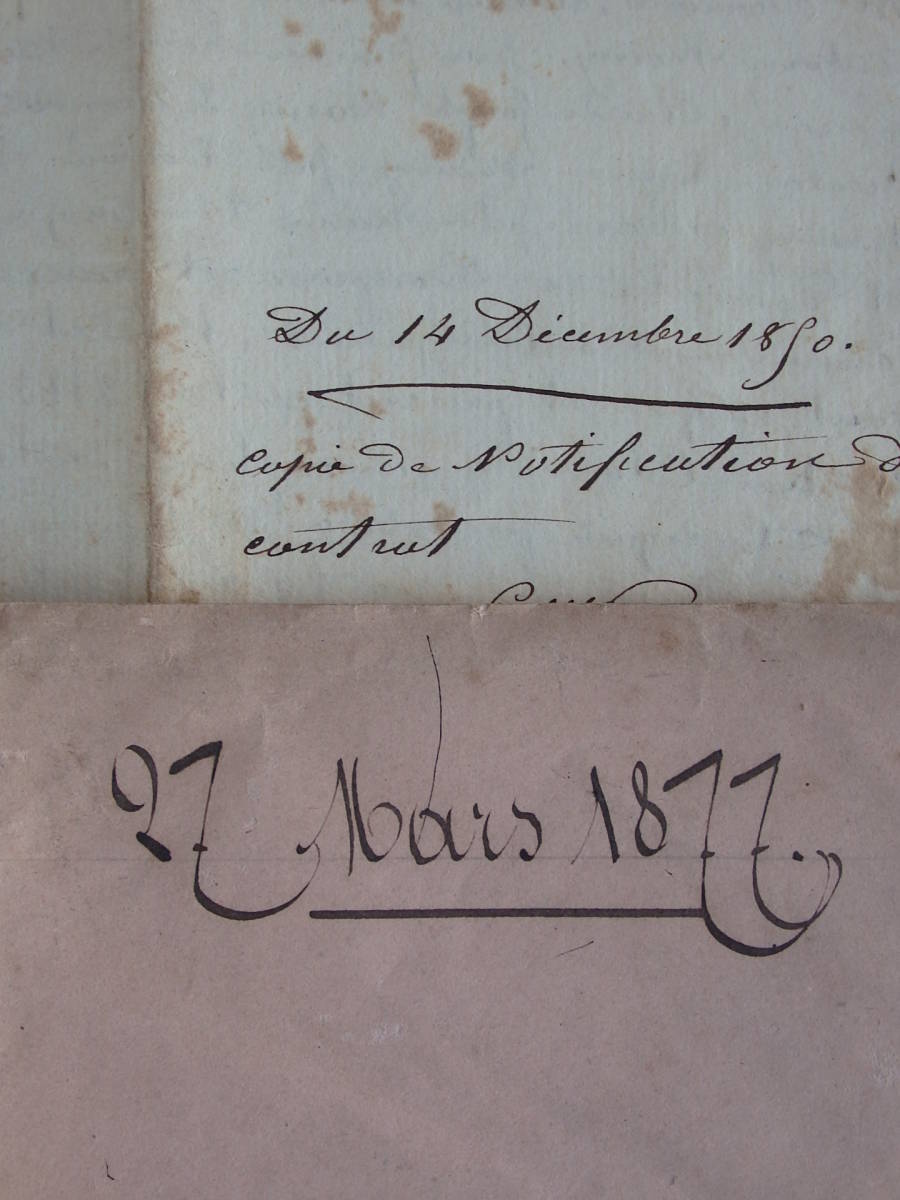 Du 14 Décembre 1850.
copie de Notification d
contrat
27 Mars 1877.